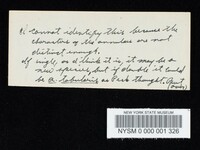 I cannot identify this because the
characters of the annulus are not
distinct enough.
If single, as I think it is, it may be a
new species, but if double it could
be A. as Peck thought.
NEW YORK STATE MUSEUM
NYSM 0 000 001 326